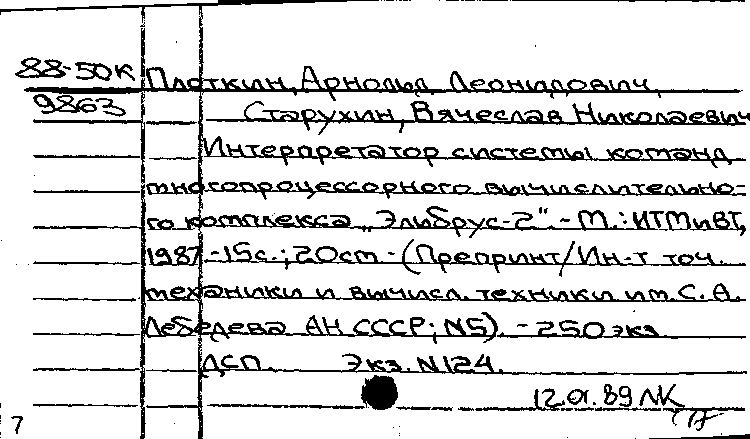 88-50К Плоткин, Арнольд Леонидович,
9863 Старухин, Вячеслав Николаевич
Интерпретатор системы команд
многопроцессорного вычислительно-
го комплекса „Эльбрус-2“. - М.: ИТМиВТ,
1987. - 15с.; 20см - (Препринт/Ин-т точ.
механики и вычисл. техники им. С. А.
Лебедева АН СССР; N5). - 250 экз
ДСП. Экз. N124.
12.01.89 ЛК
7